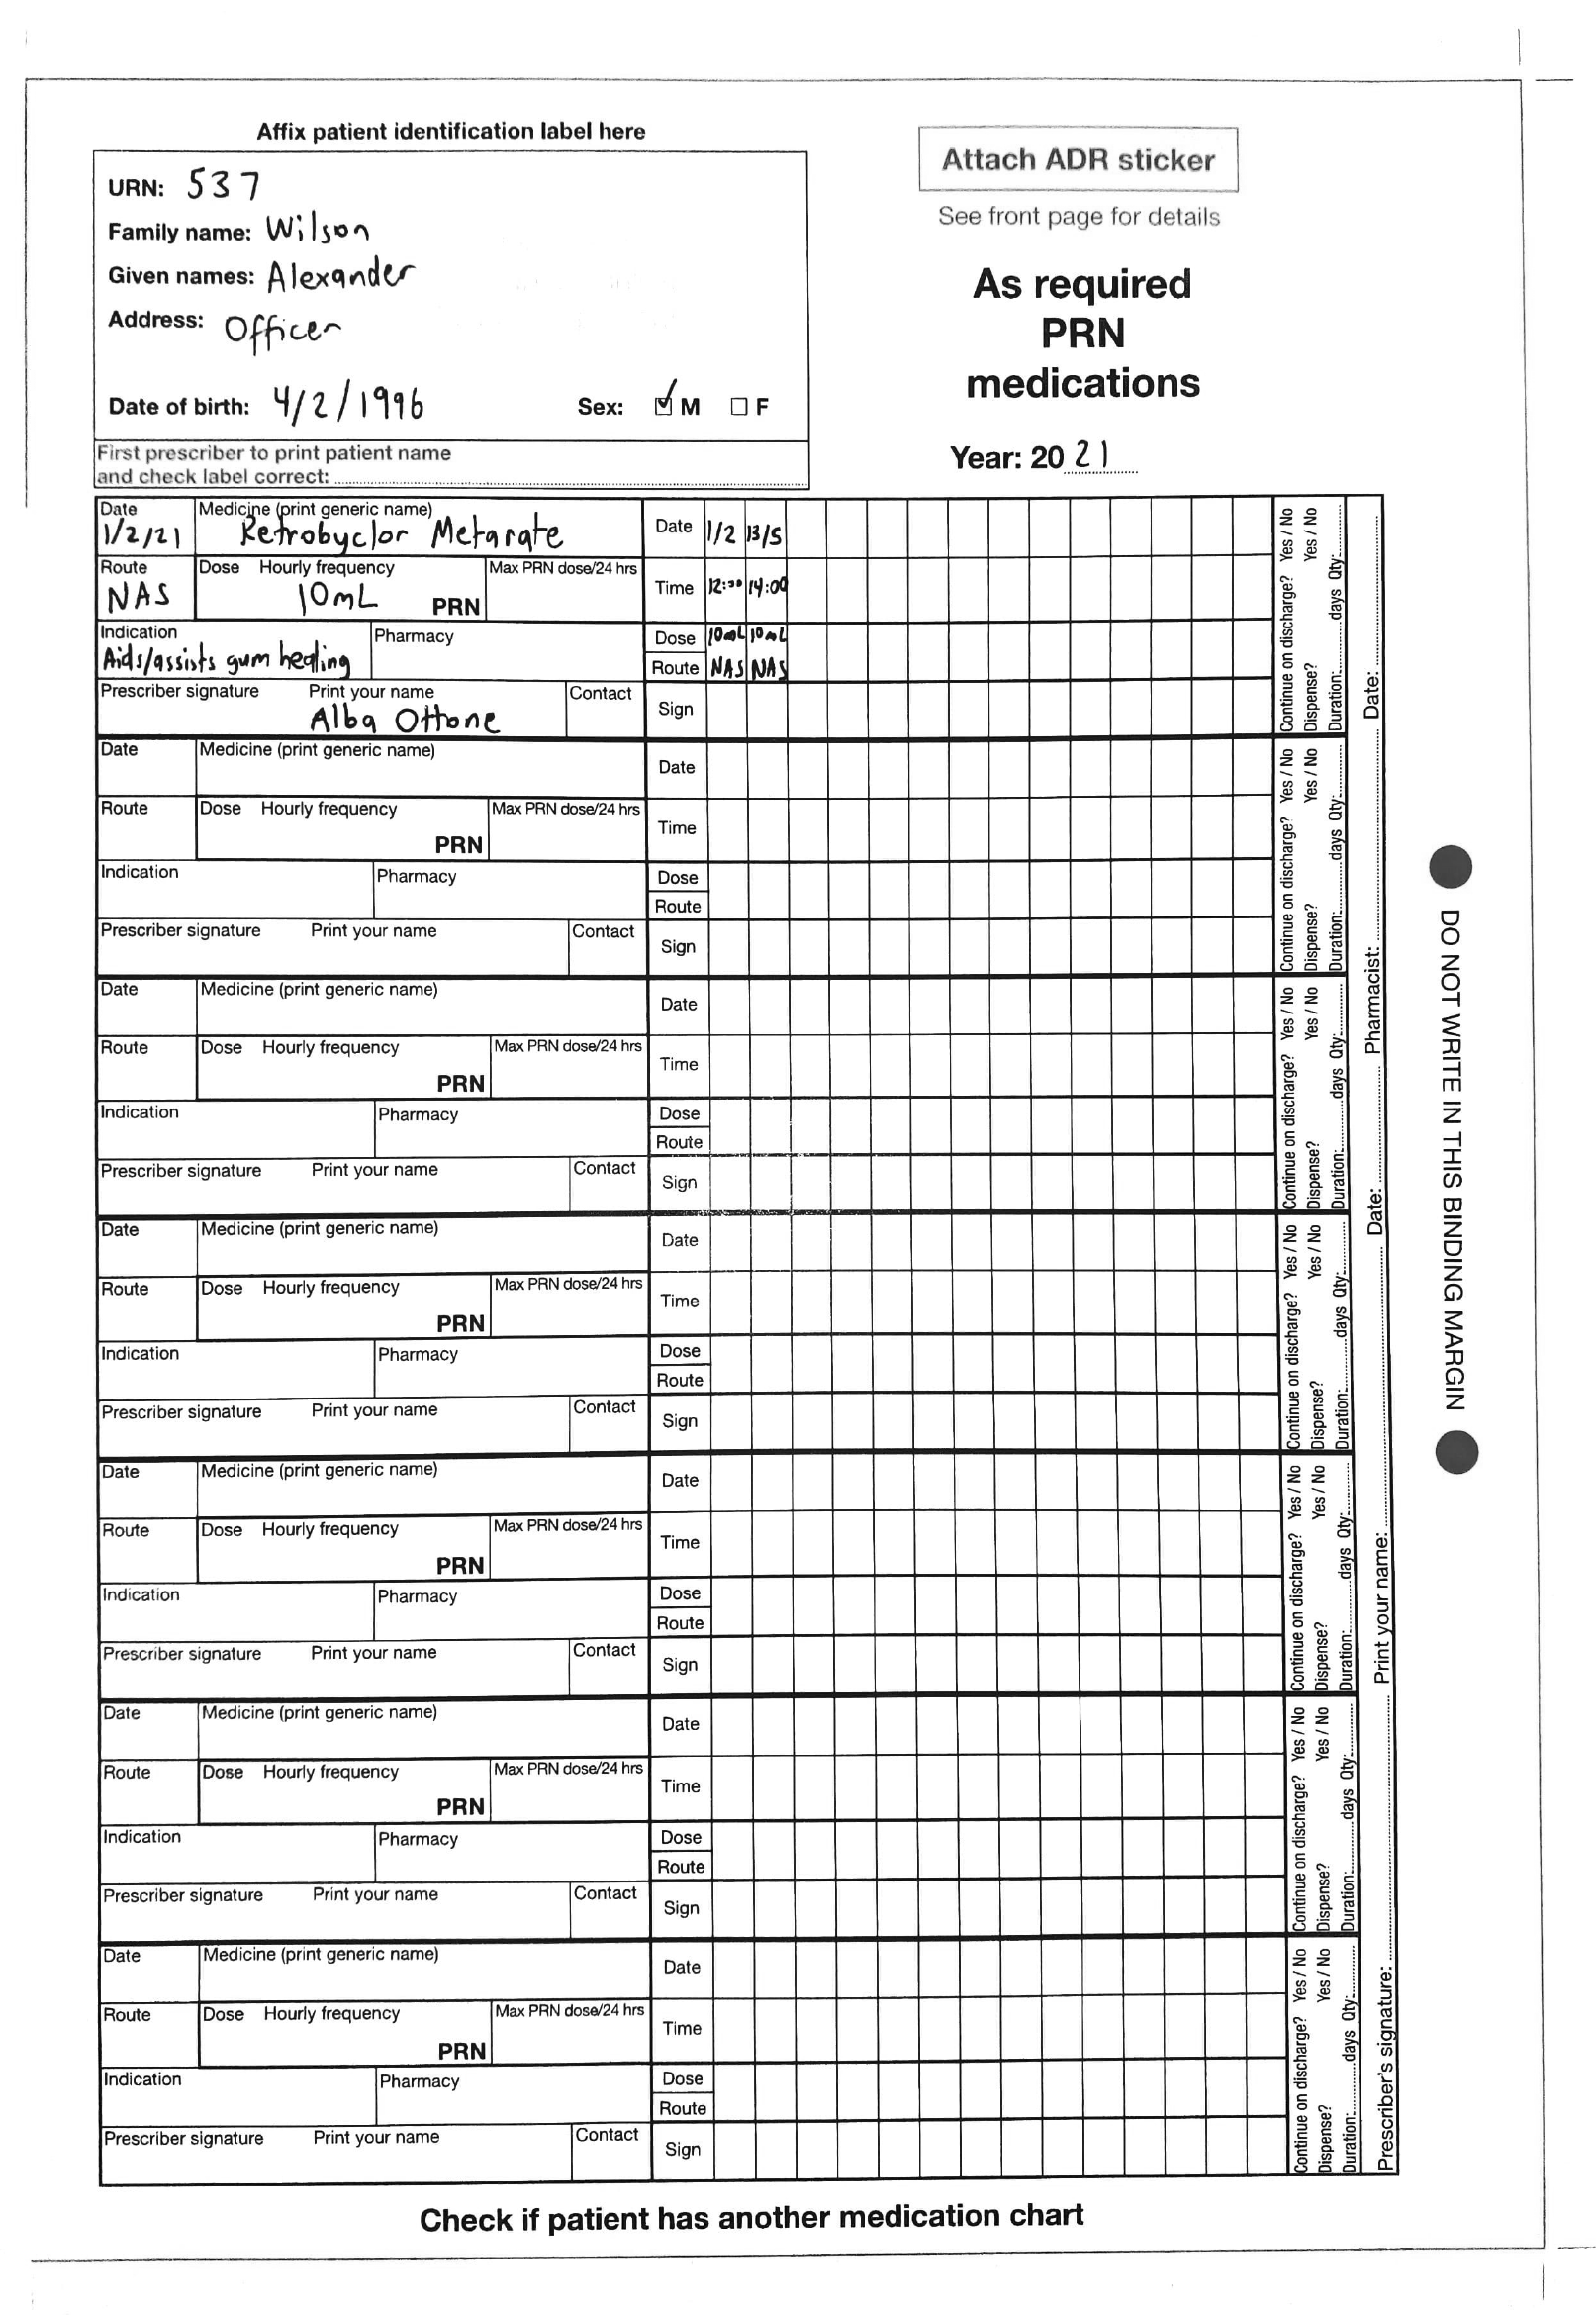 Affix patient identification label here
URN: 537
Family name: Wilson
Given names: Alexander
Address: Officer
Date of birth: 4/2/1996 Sex: M F
First prescriber to print patient name
and check label correct:
Attach ADR sticker
See front page for details
As required
PRN
medications
Year: 20 21
Date Medicine (print generic name) Date 1/2 13/5
1/2/21 Retrobyclor Metarate
Route Dose Hourly frequency Max PRN dose/24 hrs Time 12:30 14:00
NAS 10mL PRN
Indication Pharmacy Dose 10mL 10mL
Aids/assists gum healing Route NAS NAS
Prescriber signature Print your name Contact Sign
Alba Ottone
Continue on discharge? Yes / No
Dispense? Yes / No
Duration: days Qty:
Date Medicine (print generic name) Date
Route Dose Hourly frequency Max PRN dose/24 hrs Time
PRN
Indication Pharmacy Dose
Route
Prescriber signature Print your name Contact Sign
Continue on discharge? Yes / No
Dispense? Yes / No
Duration: days Qty:
Date Medicine (print generic name) Date
Route Dose Hourly frequency Max PRN dose/24 hrs Time
PRN
Indication Pharmacy Dose
Route
Prescriber signature Print your name Contact Sign
Continue on discharge? Yes / No
Dispense? Yes / No
Duration: days Qty:
Date Medicine (print generic name) Date
Route Dose Hourly frequency Max PRN dose/24 hrs Time
PRN
Indication Pharmacy Dose
Route
Prescriber signature Print your name Contact Sign
Continue on discharge? Yes / No
Dispense? Yes / No
Duration: days Qty:
Date Medicine (print generic name) Date
Route Dose Hourly frequency Max PRN dose/24 hrs Time
PRN
Indication Pharmacy Dose
Route
Prescriber signature Print your name Contact Sign
Continue on discharge? Yes / No
Dispense? Yes / No
Duration: days Qty:
Date Medicine (print generic name) Date
Route Dose Hourly frequency Max PRN dose/24 hrs Time
PRN
Indication Pharmacy Dose
Route
Prescriber signature Print your name Contact Sign
Continue on discharge? Yes / No
Dispense? Yes / No
Duration: days Qty:
Date Medicine (print generic name) Date
Route Dose Hourly frequency Max PRN dose/24 hrs Time
PRN
Indication Pharmacy Dose
Route
Prescriber signature Print your name Contact Sign
Continue on discharge? Yes / No
Dispense? Yes / No
Duration: days Qty:
Prescriber's signature: Print your name: Date: Pharmacist: Date:
DO NOT WRITE IN THIS BINDING MARGIN
Check if patient has another medication chart